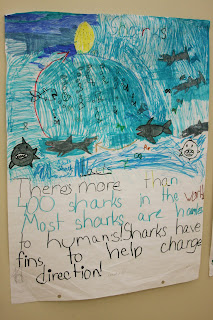 Shark Facts
Theres more than
400 sharks in the world
Most sharks are
to humans! Sharks have
fins to help change
direction!